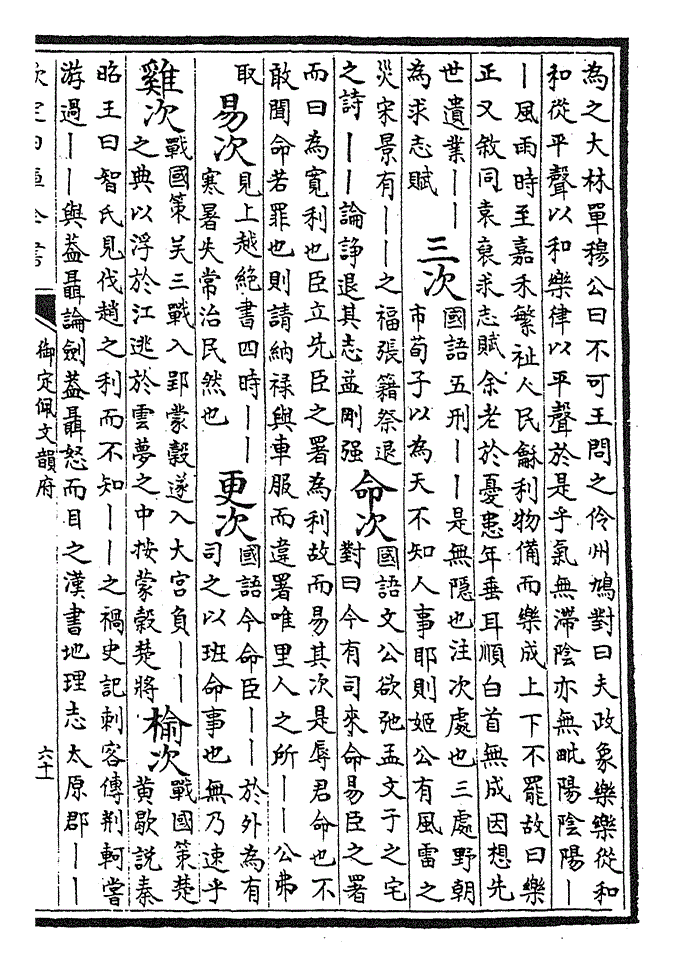 為之大林單穆公曰不可王問之伶州鳩對曰夫政象樂樂從和
和從平聲以和樂律以平聲於是乎氣無滯陰亦無毗陽陰陽丨
丨風雨時至嘉禾繁祉人民龢利物備而樂成上下不罷故曰樂
正又敘同袁裒求志賦余老於憂患年垂耳順白首無成因想先
世遺業丨丨
為求志賦
三次
國語五刑丨丨是無隱也注次處也三處野朝
市荀子以為天不知人事耶則姬公有風雷之
災宋景有丨丨之福張籍祭退
之詩丨丨論諍退其志益剛强
命次
國語文公欲弛孟文子之宅
對曰今有司來命易臣之署
而曰為寬利也臣立先臣之署為利故而易其次是辱君命也不
敢聞命若罪也則請納祿與車服而違署唯里人之所丨丨公弗
取
易次
見上越絶書四時丨丨
寒暑失常治民然也
更次
國語今命臣丨丨於外為有
司之以班命事也無乃速乎
雞次
戰國策吴三戰入郢蒙穀遂入大宫負丨丨
之典以浮於江逃於雲夢之中按蒙穀楚將
榆次
戰國策楚
黄歇説秦
昭王曰智氏見伐趙之利而不知丨丨之禍史記刺客傳荆軻嘗
游過丨丨與蓋聶論劍蓋聶怒而目之漢書地理志太原郡丨丨
御定佩文韻府
六十